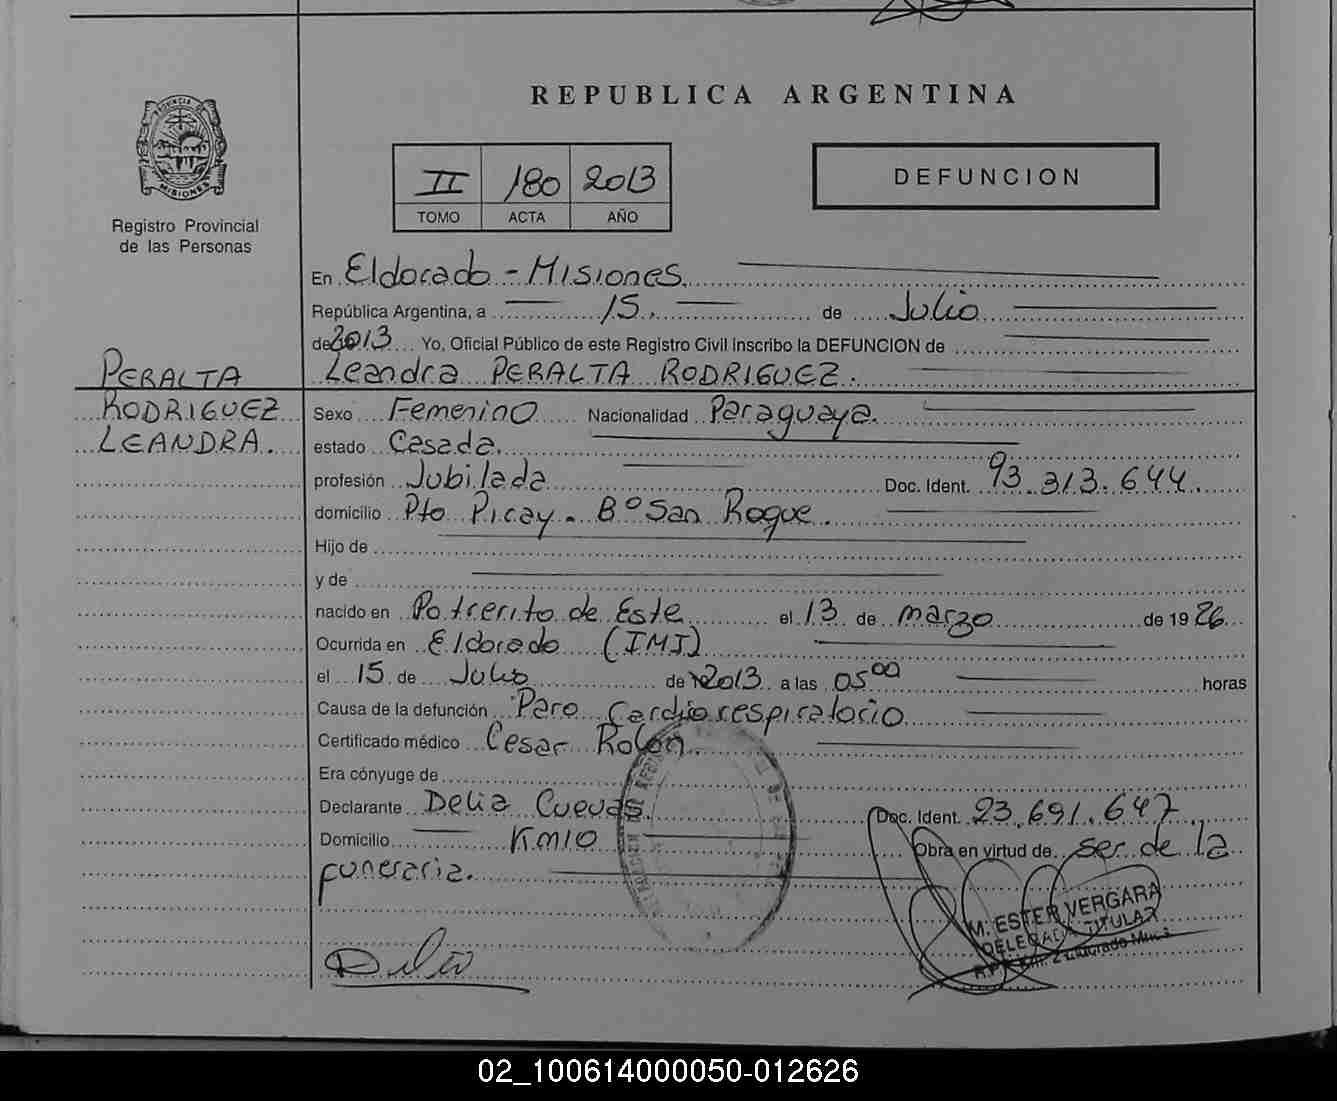 REPUBLICA ARGENTINA
PROVINCIA DE
MISIONES
Registro Provincial
de las Personas
II 180 2013
TOMO ACTA AÑO
DEFUNCION
En Eldorado - Misiones.
República Argentina, a 15. de Julio
de 2013 Yo, Oficial Público de este Registro Civil inscribo la DEFUNCION de
Leandra PERALTA RODRIGUEZ.
PERALTA
RODRIGUEZ
LEANDRA.
Sexo Femenino Nacionalidad Paraguaya.
estado Casada.
profesión Jubilada Doc. Ident. 93.313.644.
domicilio Pto Picay. B° San Roque.
Hijo de
y de
nacido en Potrerito de Este el 13 de marzo de 1926
Ocurrida en Eldorado (IMI)
el 15 de Julio de 2013 a las 05 00 horas
Causa de la defunción Paro Cardiorespiratorio
Certificado médico Cesar Rolon.
Era cónyuge de
Declarante Delia Cuevas. Doc. Ident. 23.691.647
Domicilio Km10 Obra en virtud de ser de la
funeraria.
M. ESTER VERGARA
DELEGADA TITULAR
Delia
02_100614000050-012626